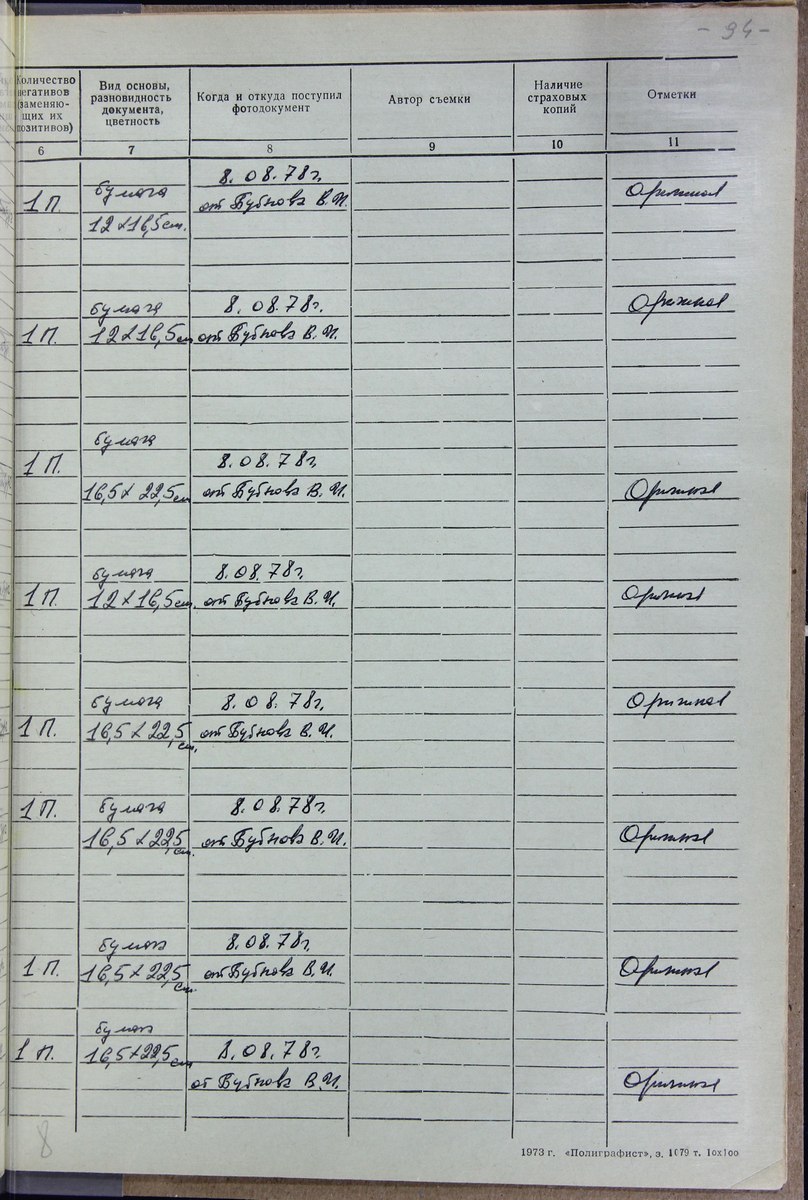 - 94 -
Количество негативов (заменяю-щих их позитивов)
Вид основы, разновидность документа, цветность
Когда и откуда поступил фотодокумент
Автор съемки
Наличие страховых копий
Отметки
6 7 8 9 10 11
8. 08. 78г.
1 П. бумага от Бубнова В.И. Оригинал
12 х 16,5 см.
бумага 8. 08. 78г. Оригинал
1 П. 12 х 16,5 см от Бубнова В.И.
бумага
1 П. 8. 08. 78г.
16,5 х 22,5 см от Бубнова В.И. Оригинал
бумага 8. 08. 78г.
1 П. 12 х 16,5 см. от Бубнова В.И. Оригинал
бумага 8. 08. 78г. Оригинал
1 П. 16,5 х 22,5 см. от Бубнова В.И.
1 П. бумага 8. 08. 78г.
16,5 х 22,5 см. от Бубнова В.И. Оригинал
бумага 8. 08. 78г.
1 П. 16,5 х 22,5 см. от Бубнова В.И. Оригинал
бумага
1 П. 16,5 х 22,5 см 8. 08. 78г.
от Бубнова В.И. Оригинал
8
1973 г. «Полиграфист», з. 1079 т. 10х100